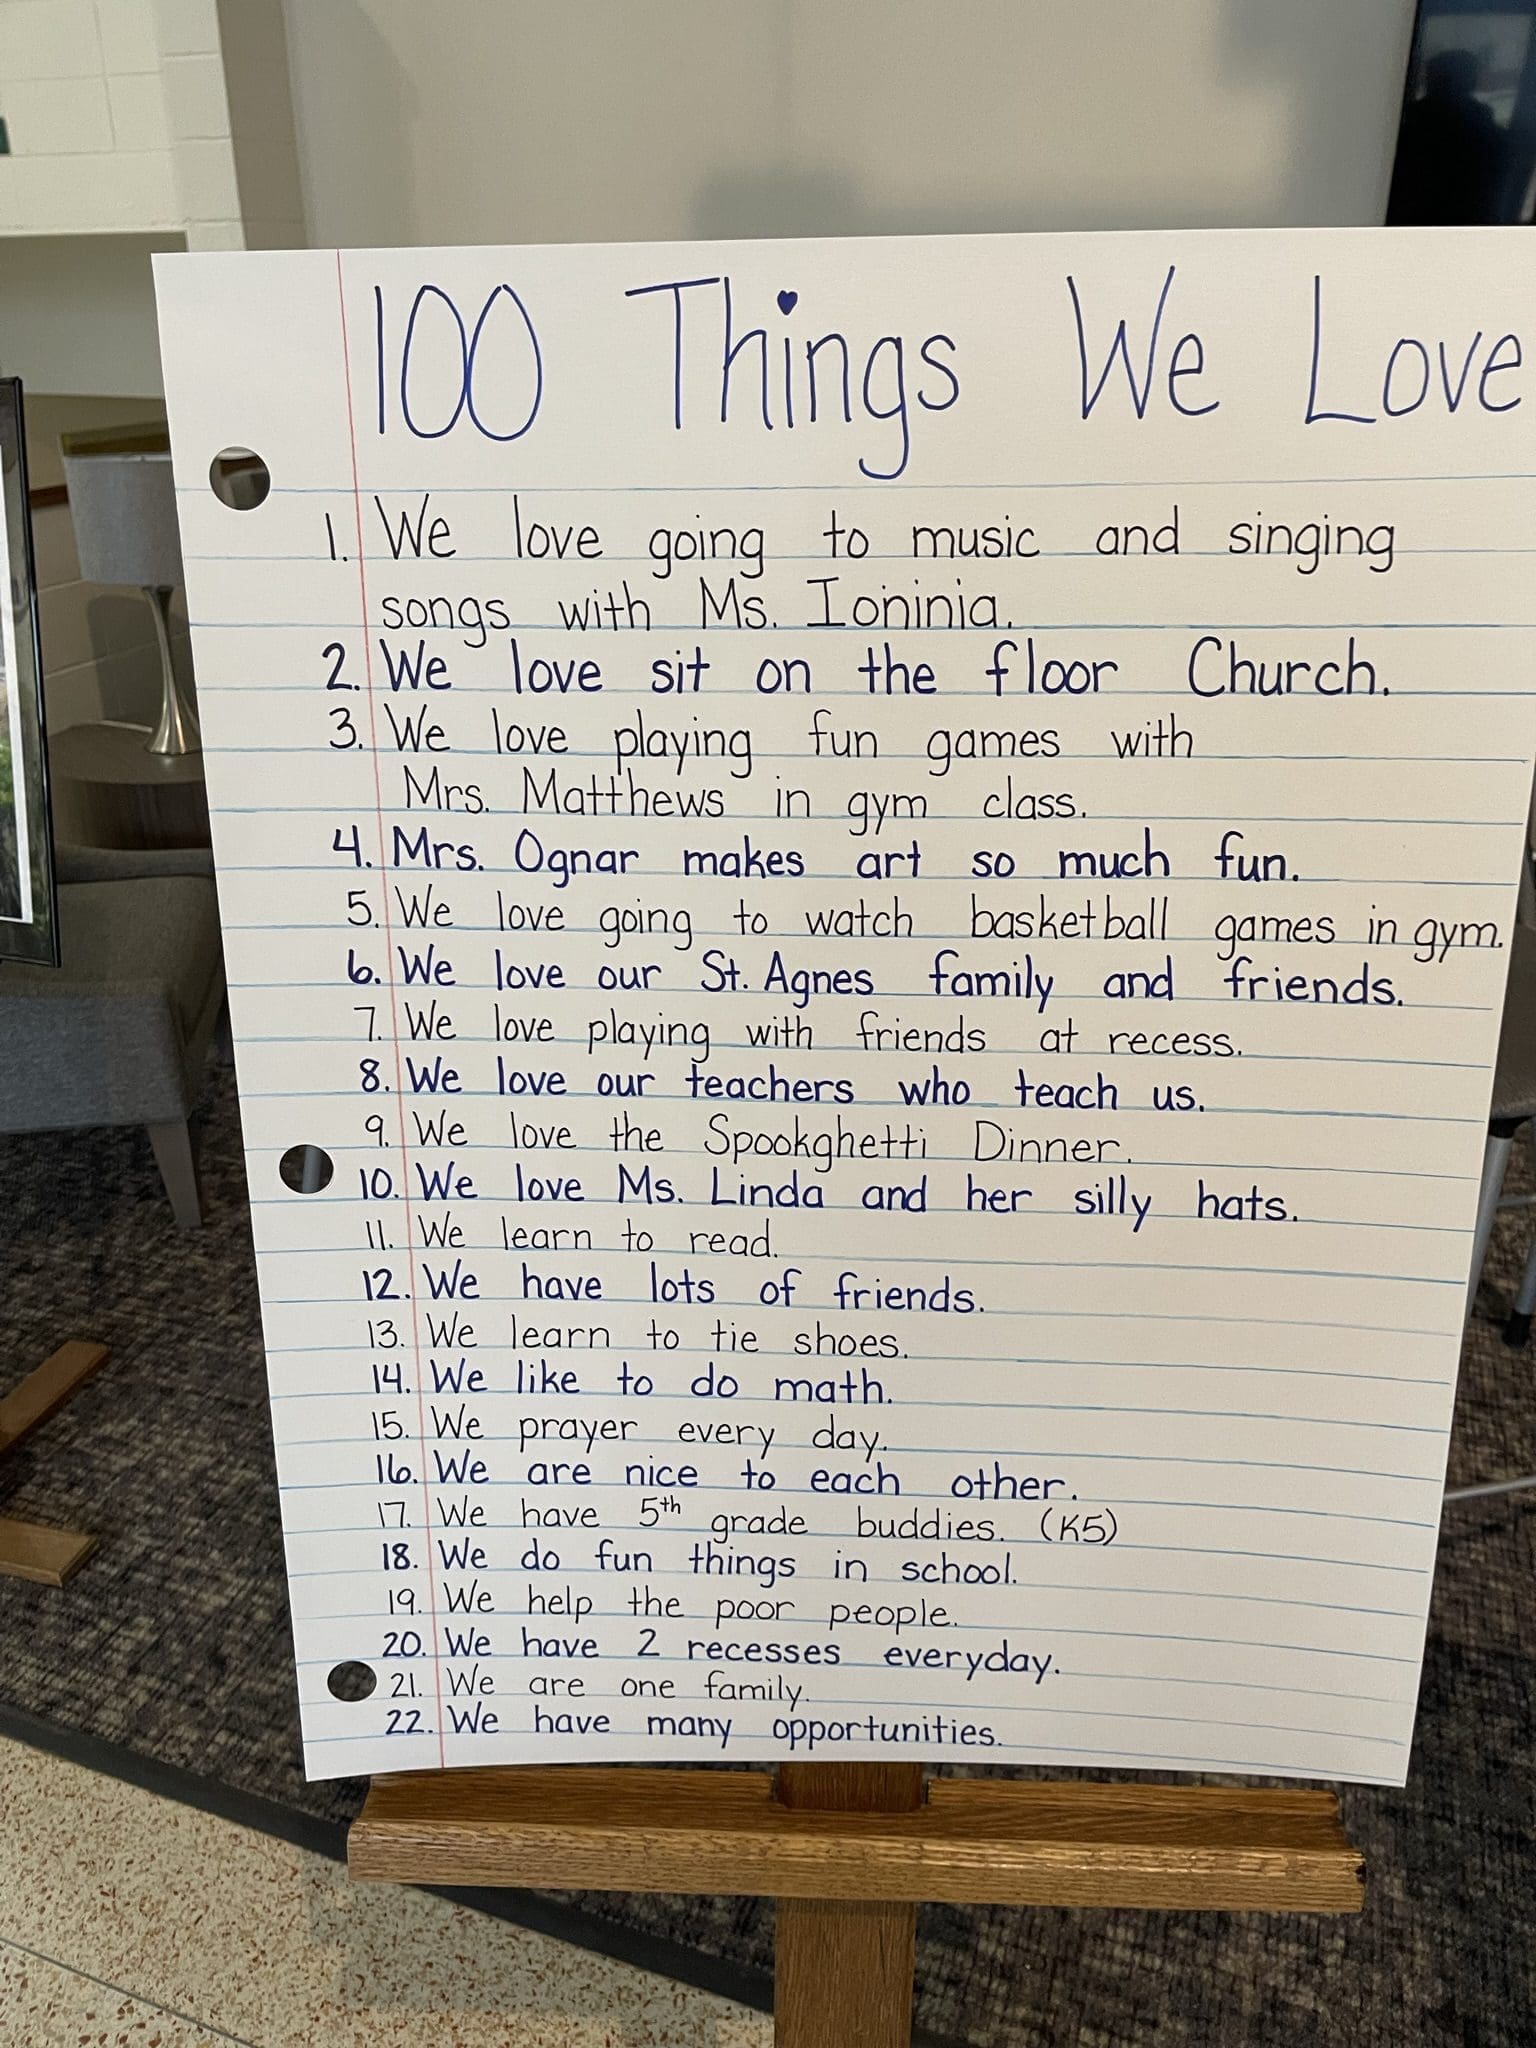 100 Things We Love
1. We love going to music and singing
songs with Ms. Ioninia.
2. We love sit on the floor Church.
3. We love playing fun games with
Mrs. Matthews in gym class.
4. Mrs. Ognar makes art so much fun.
5. We love going to watch basketball games in gym.
6. We love our St. Agnes family and friends.
7. We love playing with friends at recess.
8. We love our teachers who teach us.
9. We love the Spookghetti Dinner.
10. We love Ms. Linda and her silly hats.
11. We learn to read.
12. We have lots of friends.
13. We learn to tie shoes.
14. We like to do math.
15. We prayer every day.
16. We are nice to each other.
17. We have 5th grade buddies. (K5)
18. We do fun things in school.
19. We help the poor people.
20. We have 2 recesses everyday.
21. We are one family.
22. We have many opportunities.